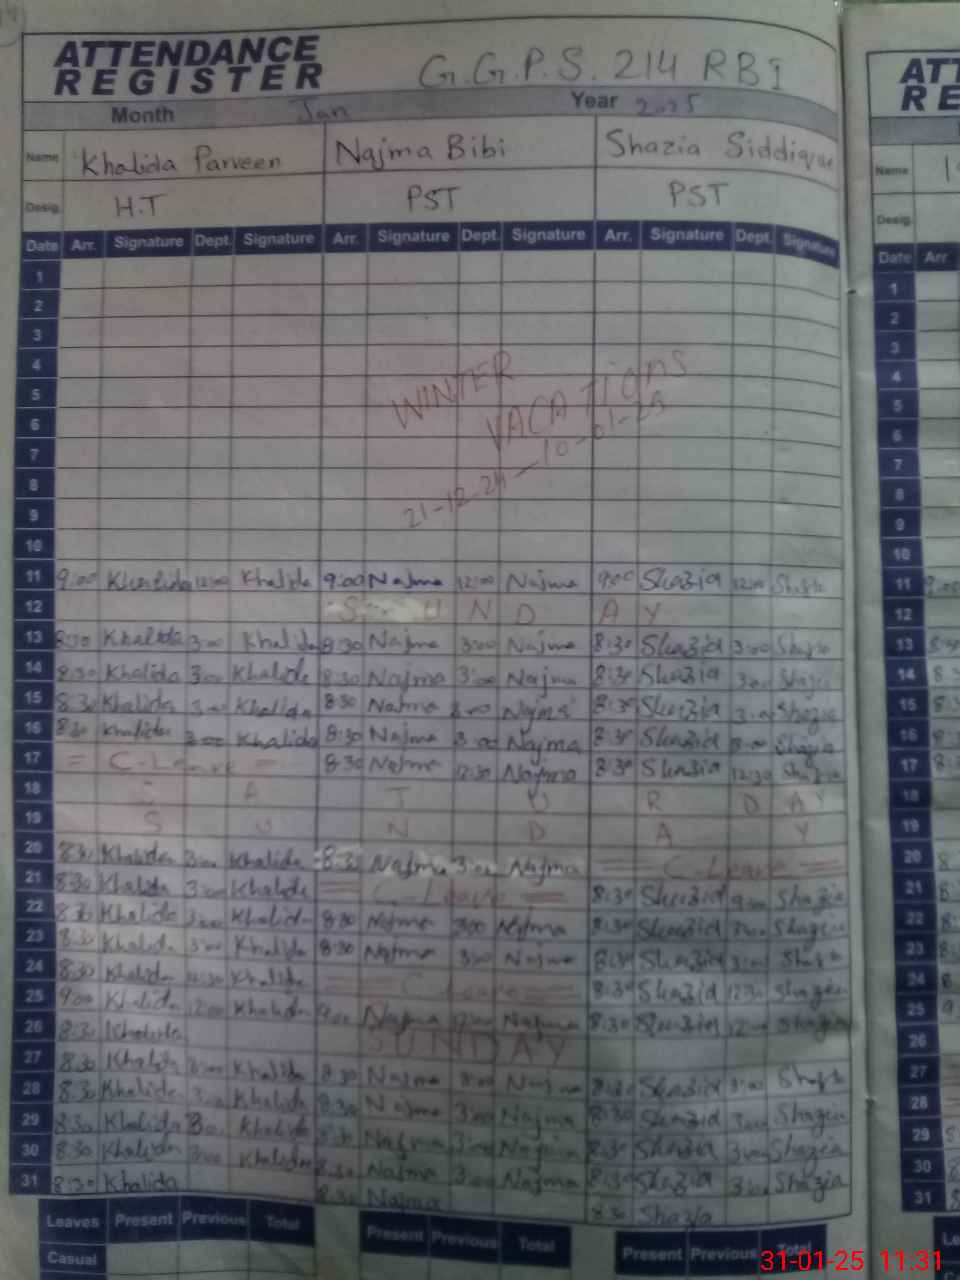 ATTENDANCE
REGISTER
G.G.P.S. 214 RB I
Month Jan Year 2025
Name Khalida Parveen Najma Bibi Shazia Siddique
Desig. H.T PST PST
Date Arr. Signature Dept. Signature Arr. Signature Dept. Signature Arr. Signature Dept. Signature
1
2
3
4
5
6
7
8
9
10
WINTER
VACATIONS
21-12-24 — 10-01-25
11 9:00 Khalida 12:00 Khalida 9:00 Najma 12:00 Najma 9:00 Shazia 12:00 Shazia
12 S U N D A Y
13 8:30 Khalida 3:00 Khalida 8:30 Najma 3:00 Najma 8:30 Shazia 3:00 Shazia
14 8:30 Khalida 3:00 Khalida 8:30 Najma 3:00 Najma 8:30 Shazia 3:00 Shazia
15 8:30 Khalida 3:00 Khalida 8:30 Najma 3:00 Najma 8:30 Shazia 3:00 Shazia
16 8:30 Khalida 3:00 Khalida 8:30 Najma 3:00 Najma 8:30 Shazia 3:00 Shazia
17 = C-Leave = 8:30 Najma 12:30 Najma 8:30 Shazia 12:30 Shazia
18 S A T U R D A Y
19 S U N D A Y
20 8:30 Khalida 3:00 Khalida 8:30 Najma 3:00 Najma = C-Leave =
21 8:30 Khalida 3:00 Khalida = C-Leave = 8:30 Shazia Shazia
22 8:30 Khalida 3:00 Khalida 8:30 Najma 3:00 Najma 8:30 Shazia 3:00 Shazia
23 8:30 Khalida 3:00 Khalida 8:30 Najma 3:00 Najma 8:30 Shazia 3:00 Shazia
24 8:30 Khalida Khalida = C-Leave = 8:30 Shazia 12:30 Shazia
25 9:00 Khalida 12:00 Khalida 9:00 Najma 12:00 Najma 8:30 Shazia 12:00 Shazia
26 8:30 Khalida SUNDAY
27 8:30 Khalida 3:00 Khalida 8:30 Najma 3:00 Najma 8:30 Shazia 3:00 Shazia
28 8:30 Khalida 3:00 Khalida 8:30 Najma 3:00 Najma 8:30 Shazia 3:00 Shazia
29 8:30 Khalida 3:00 Khalida 8:30 Najma 3:00 Najma 8:30 Shazia 3:00 Shazia
30 8:30 Khalida 3:00 Khalida 8:30 Najma 3:00 Najma 8:30 Shazia 3:00 Shazia
31 8:30 Khalida 8:30 Najma 8:30 Shazia
Leaves Present Previous Total Present Previous Total Present Previous Total
Casual
ATT
RE
Name
Desig.
Date Arr.
1
2
3
4
5
6
7
8
9
10
11 9:00
12
13
14
15
16
17
18
19
20
21
22
23
24
25
26
27
28
29
30
31
31-01-25 11:31